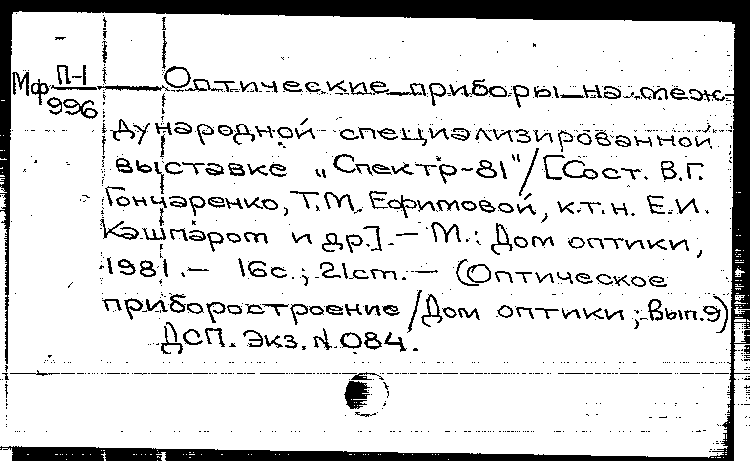 Мф П-1/996 Оптические приборы на меж-
дународной специализированной
выставке „Спектр-81"/[Сост. В.Г.
Гончаренко, Т.М. Ефимовой, к.т.н. Е.И.
Кашпаром и др.].— М.: Дом оптики,
1981.— 16с.; 21см.— (Оптическое
приборостроение/Дом оптики; Вып.9)
ДСП. Экз. N 084.